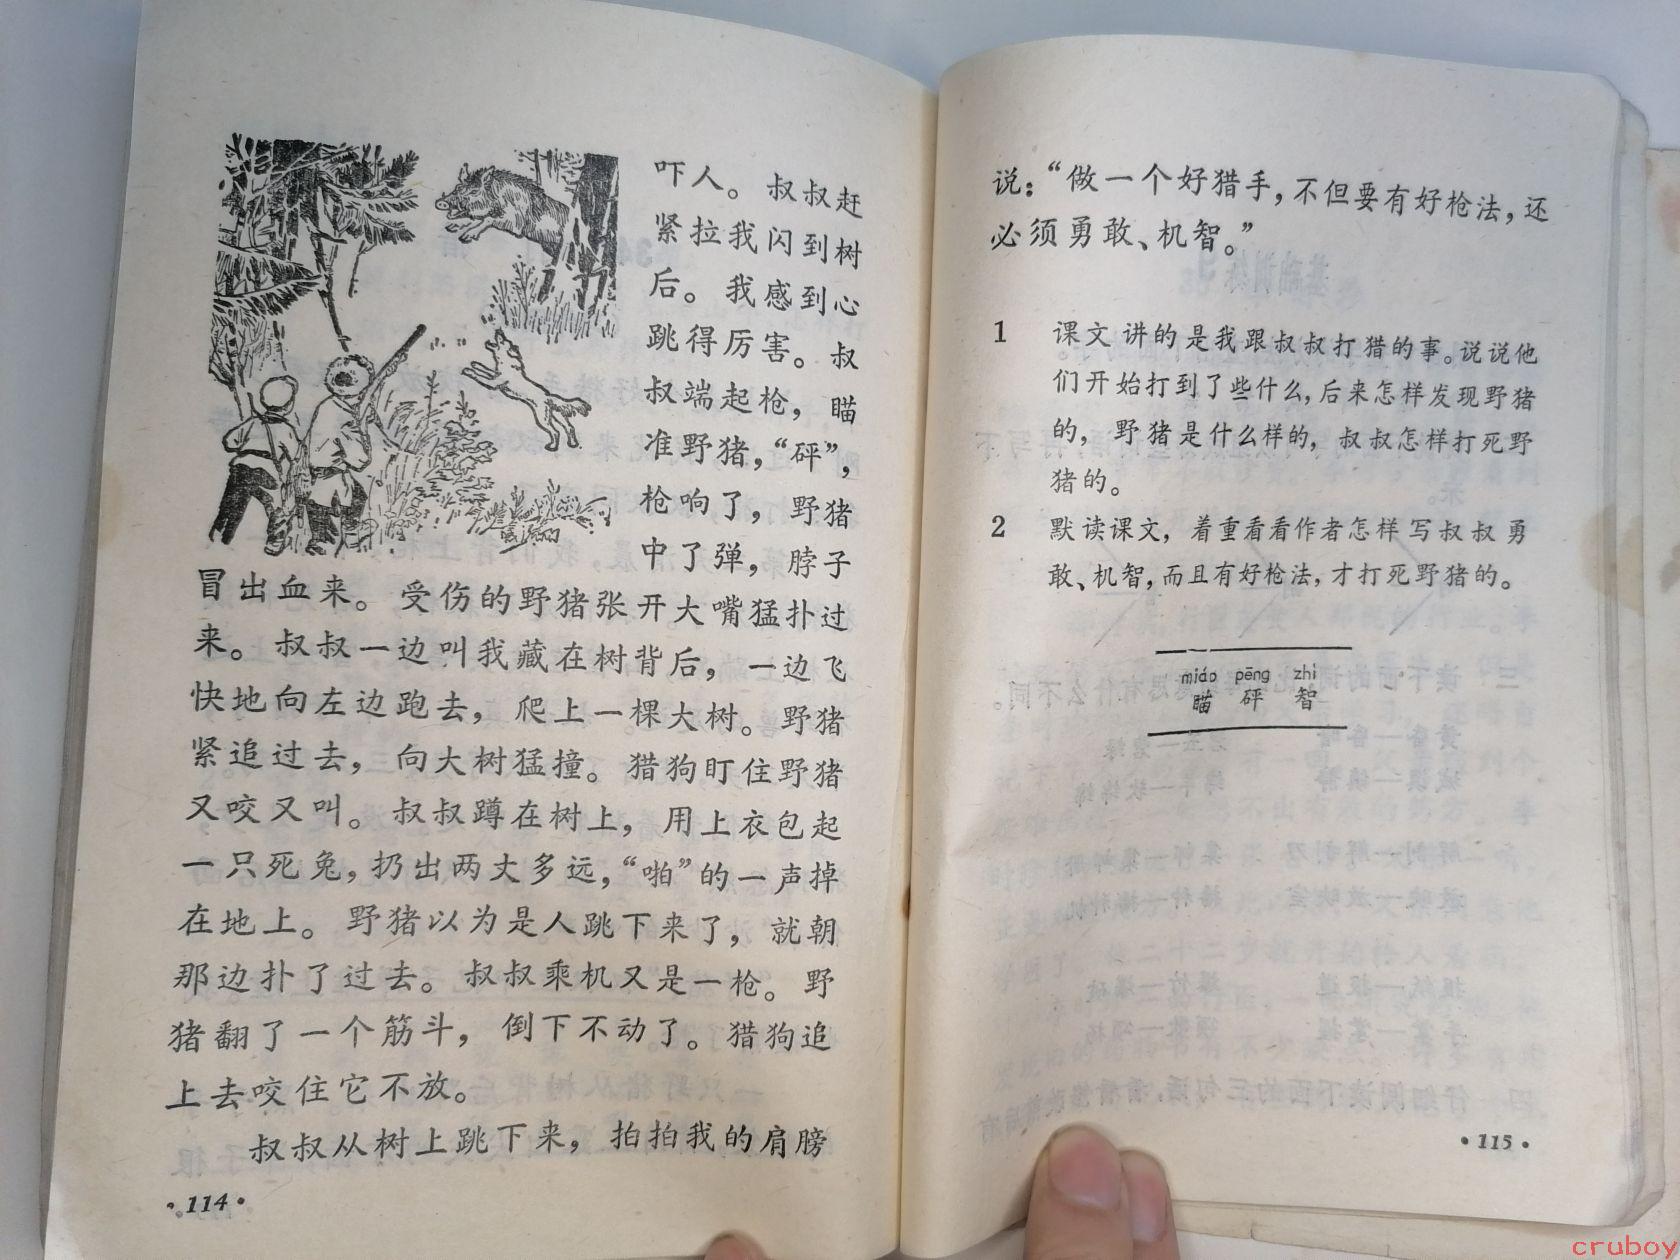 吓人。叔叔赶
紧拉我闪到树
后。我感到心
跳得厉害。叔
叔端起枪，瞄
准野猪，“砰”，
枪响了，野猪
中了弹，脖子
冒出血来。受伤的野猪张开大嘴猛扑过
来。叔叔一边叫我藏在树背后，一边飞
快地向左边跑去，爬上一棵大树。野猪
紧追过去，向大树猛撞。猎狗盯住野猪
又咬又叫。叔叔蹲在树上，用上衣包起
一只死兔，扔出两丈多远，“啪”的一声掉
在地上。野猪以为是人跳下来了，就朝
那边扑了过去。叔叔乘机又是一枪。野
猪翻了一个筋斗，倒下不动了。猎狗追
上去咬住它不放。
叔叔从树上跳下来，拍拍我的肩膀
·114·
说：“做一个好猎手，不但要有好枪法，还
必须勇敢、机智。”
1 课文讲的是我跟叔叔打猎的事。说说他
们开始打到了些什么，后来怎样发现野猪
的，野猪是什么样的，叔叔怎样打死野
猪的。
2 默读课文，着重看看作者怎样写叔叔勇
敢、机智，而且有好枪法，才打死野猪的。
miáo pēng zhì
瞄 砰 智
·115·
cruboy